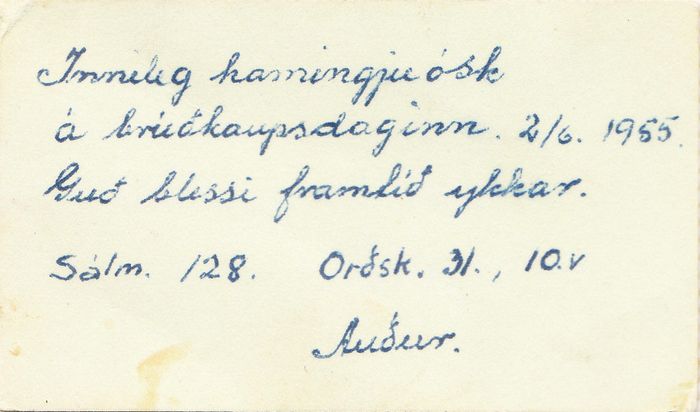 Innileg hamingjuósk
á brúðkaupsdaginn. 2/6. 1955.
Guð blessi framtíð ykkar.
Sálm. 128. Orðsk. 31., 10.v
Auður.